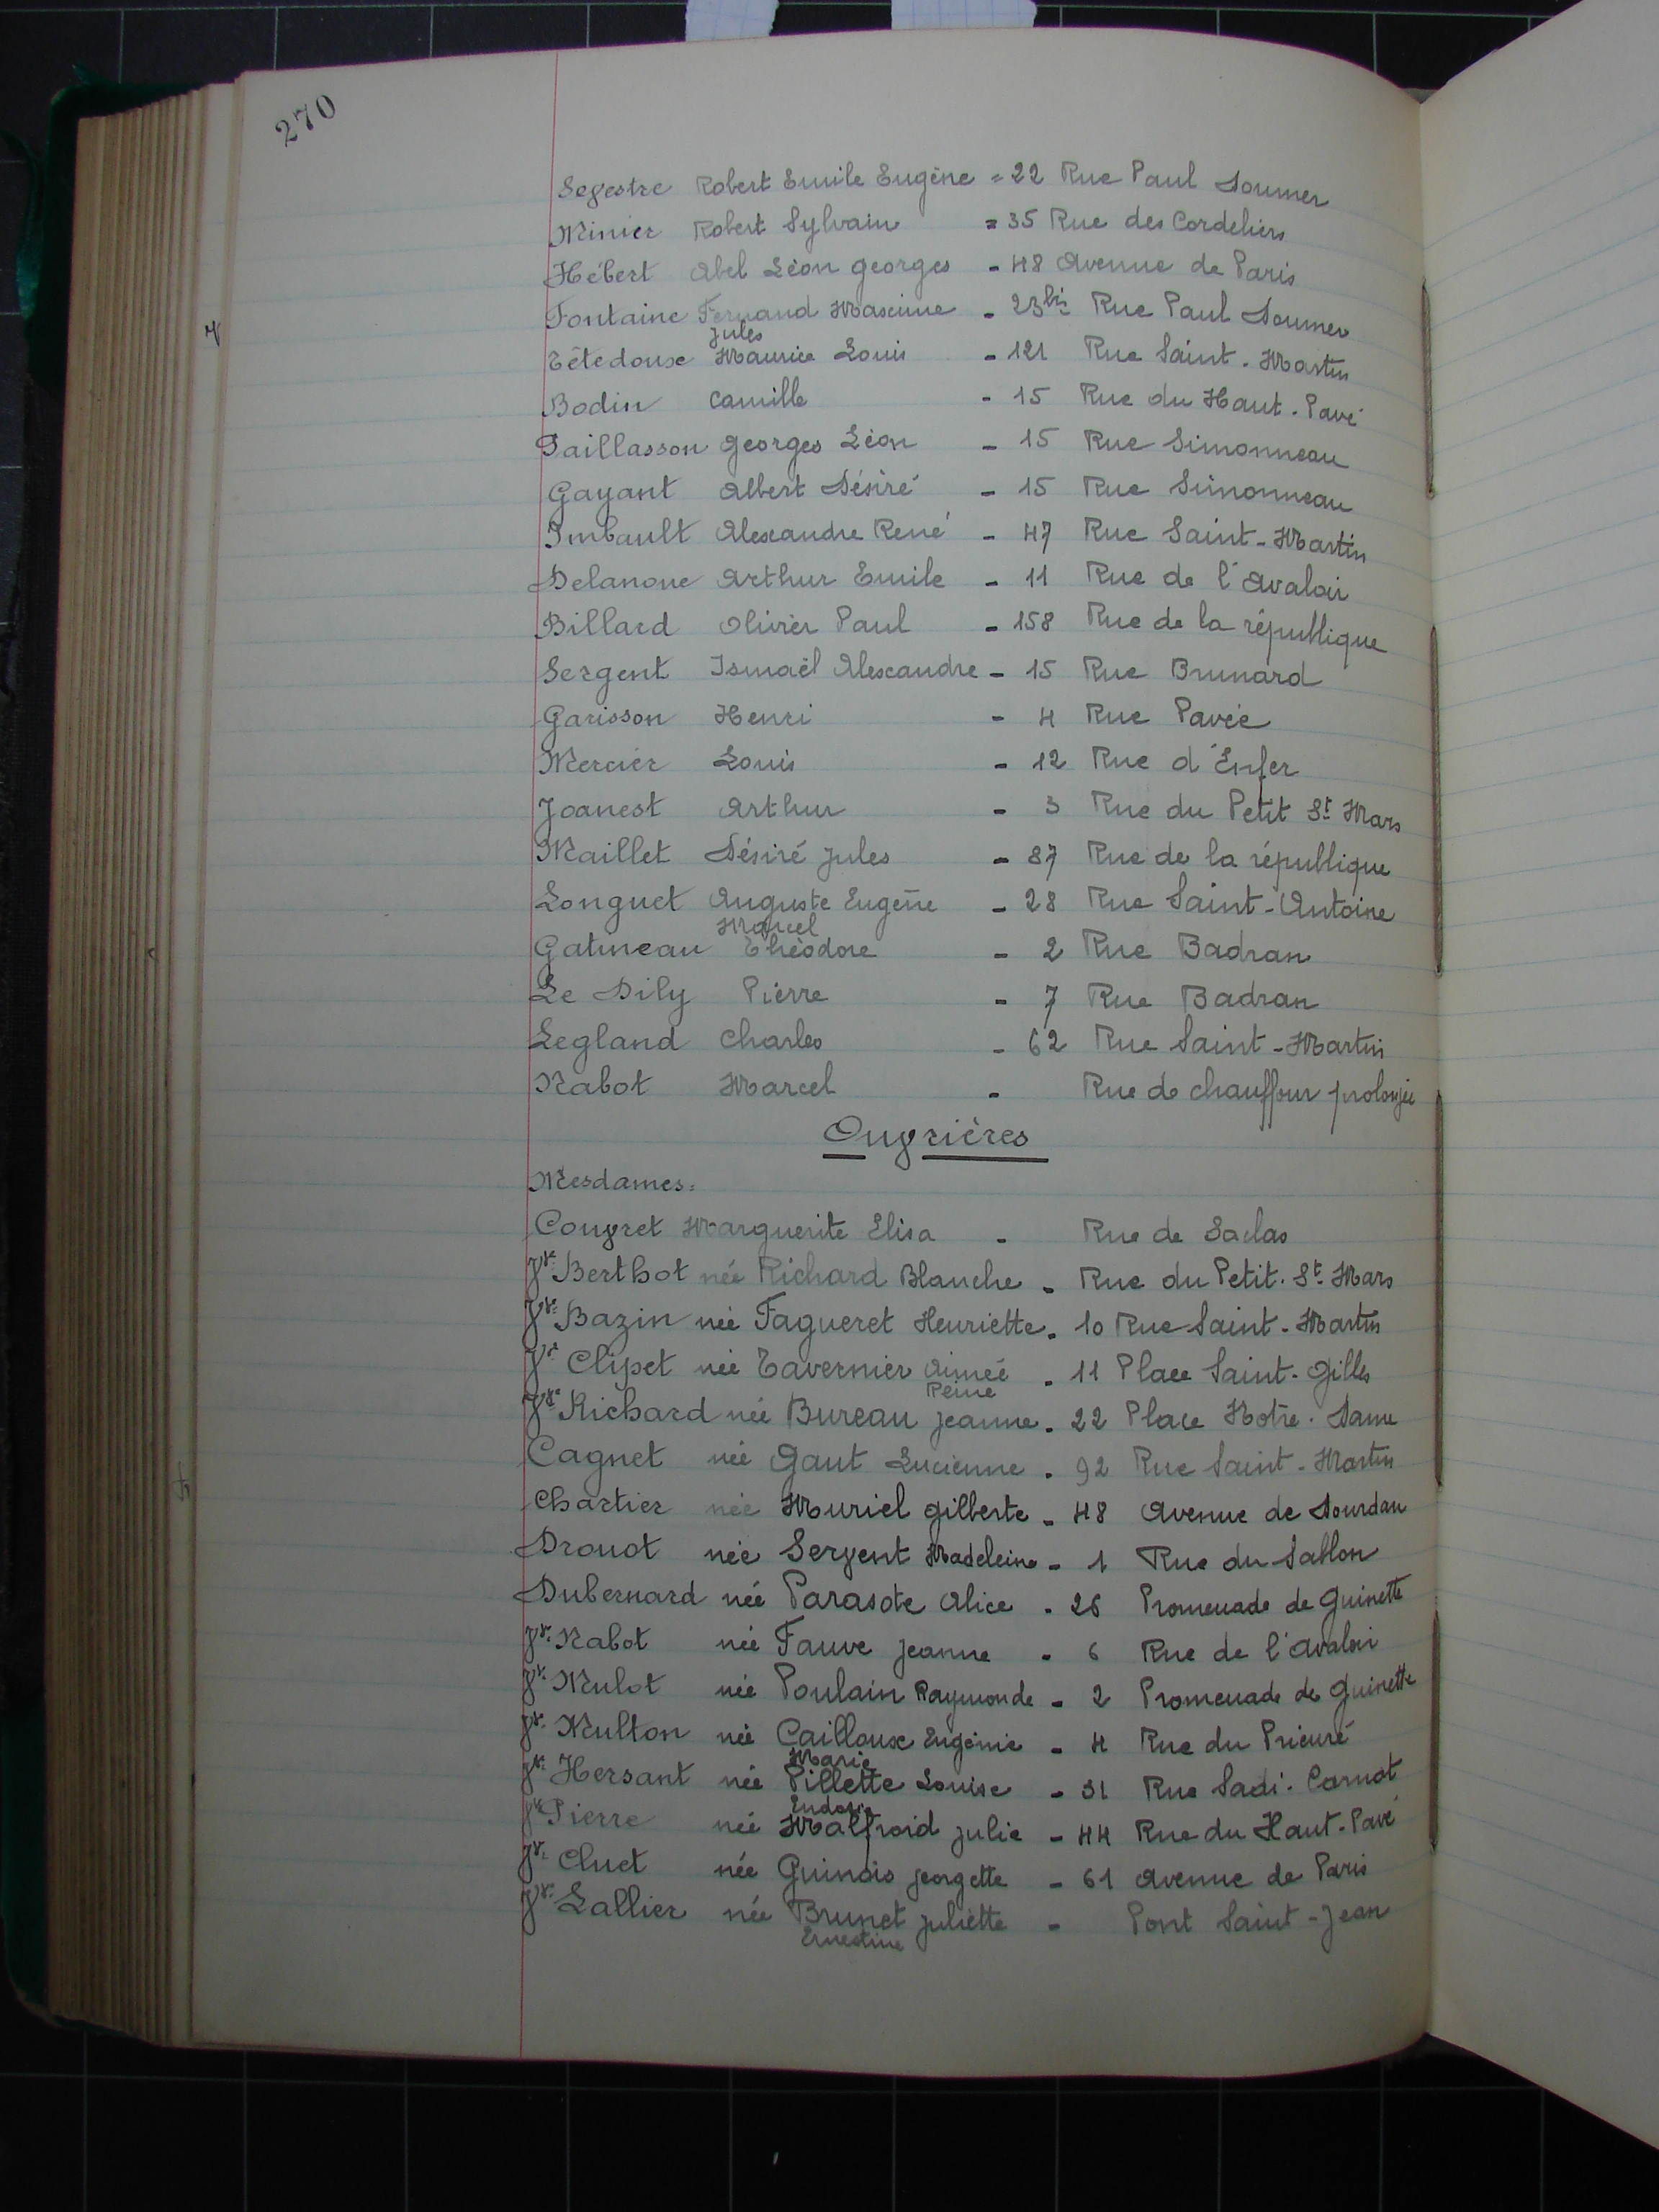 270
Segestre Robert Emile Eugène = 22 Rue Paul Doumer
Minier Robert Sylvain = 35 Rue des Cordeliers
Hébert Abel Léon Georges - 48 Avenue de Paris
Fontaine Fernand Maxime - 23bis Rue Paul Doumer
Jules
Têtedoux Maurice Louis - 121 Rue Saint-Martin
Bodin Camille - 15 Rue du Haut-Pavé
Paillasson Georges Léon - 15 Rue Simonneau
Gayant Albert Désiré - 15 Rue Simonneau
Imbault Alexandre René - 47 Rue Saint-Martin
Delanoue Arthur Emile - 11 Rue de l'Avaloir
Billard Olivier Paul - 158 Rue de la république
Sergent Ismaël Alexandre - 15 Rue Brunard
Garisson Henri - 4 Rue Pavée
Mercier Louis - 12 Rue d'Enfer
Joanest Arthur - 3 Rue du Petit St Mars
Maillet Désiré Jules - 87 Rue de la république
Longuet Auguste Eugène - 28 Rue Saint-Antoine
Marcel
Gatineau Théodore - 2 Rue Badran
Le Dily Pierre - 7 Rue Badran
Legland Charles - 62 Rue Saint-Martin
Nabot Marcel - Rue de chauffour prolongée
Ouvrières
Mesdames:
Couvret Marguerite Elisa - Rue de Saclas
Vve Berthot née Richard Blanche - Rue du Petit-St-Mars
Vve Bazin née Fagueret Henriette - 10 Rue Saint-Martin
Vve Clipet née Tavernier Aimée - 11 Place Saint-Gilles
Reine
Vve Richard née Bureau Jeanne - 22 Place Notre-Dame
Cagnet née Gaut Lucienne - 92 Rue Saint-Martin
Chartier née Muriel Gilberte - 48 Avenue de Dourdan
Drouot née Sergent Madeleine - 1 Rue du Sablon
Dubernard née Parasote Alice - 26 Promenade de Guinette
Vve Nabot née Fauve Jeanne - 6 Rue de l'Avaloir
Vve Mulot née Poulain Raymonde - 2 Promenade de Guinette
Vve Multon née Cailloux Eugénie - 4 Rue du Prieuré
Marie
Vve Hersant née Pillette Louise - 31 Rue Sadi-Carnot
Eudoxie
Vve Pierre née Malfroid Julie - 44 Rue du Haut-Pavé
Vve Cluet née Guinois Georgette - 61 Avenue de Paris
Vve Lallier née Brunet Juliette - Pont Saint-Jean
Ernestine